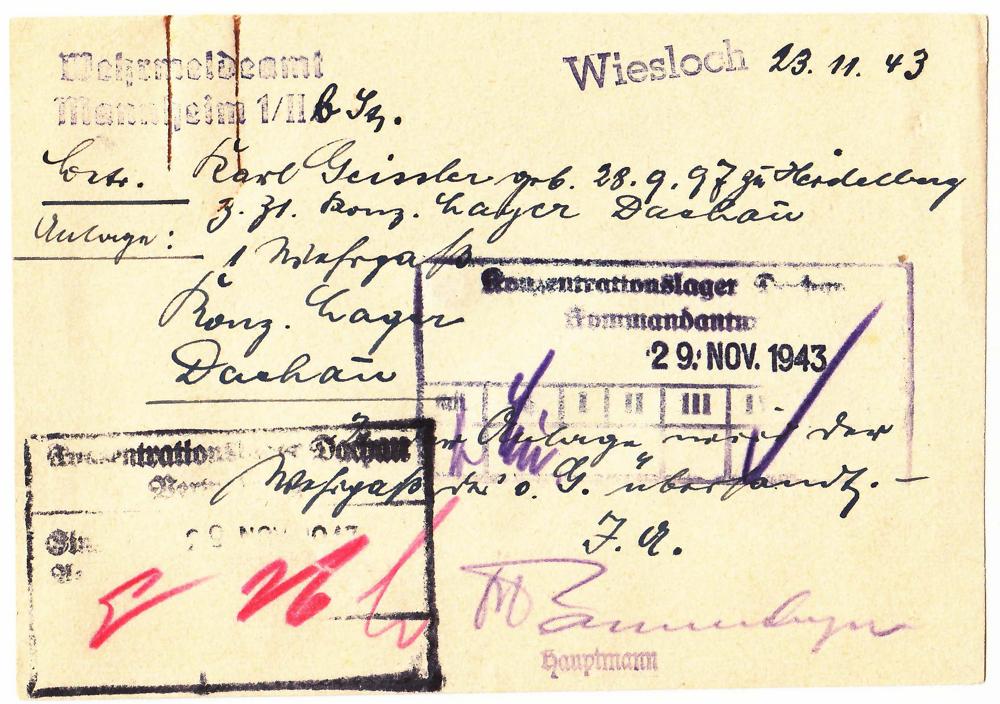 Wehrmeldeamt
Mannheim 1/II
Wiesloch 23.11.43
Betr. Karl Geissler geb. 28.9.97 zu Heidelberg
z. Zt. Konz. Lager Dachau
Anlage:
1 Wehrpaß
Konz. Lager
Dachau
Konzentrationslager Dachau
Kommandantur
29. NOV. 1943
III
In der Anlage wird der
Wehrpaß des o. G. übersandt. –
I. A.
Hauptmann
Konzentrationslager Dachau
29 NOV 1943